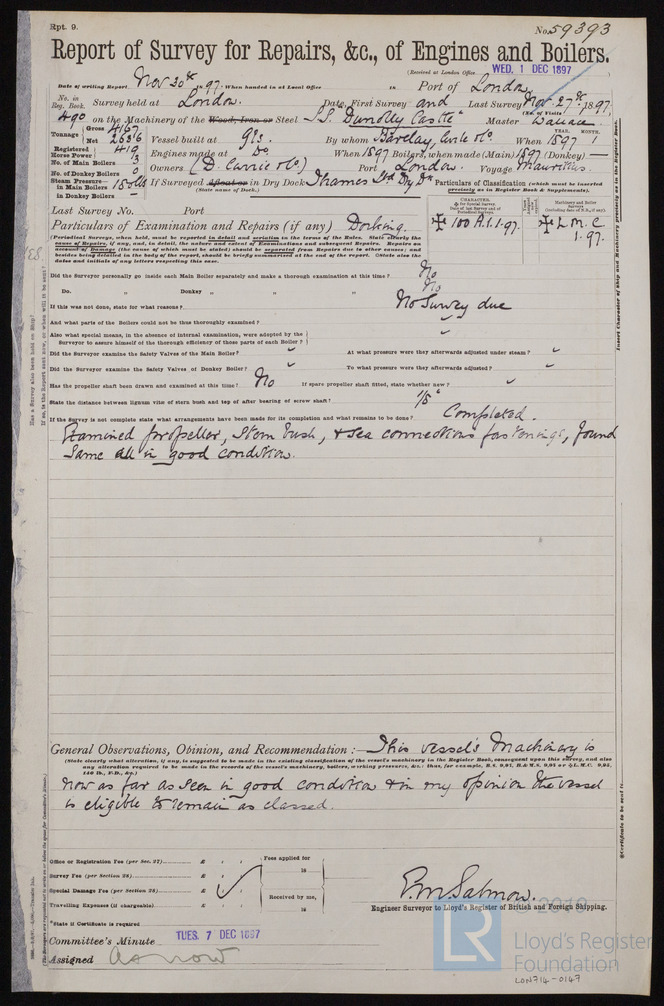 Rpt. 9.
No. 59393
Report of Survey for Repairs, &c., of Engines and Boilers.
(Received at London Office WED. 1 DEC 1897
Date of writing Report Nov 30th 1897. When handed in at Local Office 18 Port of London
No. in Reg. Book. Survey held at London. Date, First Survey and Last Survey Nov. 27th 1897.
(No. of Visits)
490 on the Machinery of the Wood, Iron or Steel S.S. "Dunolly Castle" Master Wallace
Tonnage Gross 4167
Net 2636 Vessel built at Gls. By whom Barclay, Curle & Co. When 1897 1
YEAR. MONTH.
Registered Horse Power 419 Engines made at Do When 1897 Boilers, when made (Main) 1897 (Donkey) —
No. of Main Boilers
No. of Donkey Boilers 0 Owners (D. Currie & Co) Port London. Voyage Mauritius
Steam Pressure—
in Main Boilers
in Donkey Boilers —
If Surveyed Afloat or in Dry Dock Thames
(State name of Dock.)
Particulars of Classification (which must be inserted precisely as in Register Book & Supplements).
Last Survey No. Port
Particulars of Examination and Repairs (if any) Docking.
100 A.1. 1.97.
L M C
1.97.
(Periodical Surveys, when held, must be reported in detail and seriatim in the terms of the Rules. State clearly the
cause of Repairs, if any, and, in detail, the nature and extent of Examinations and subsequent Repairs. Repairs on
account of Damage (the cause of which must be stated) should be separated from Repairs due to other causes; and
besides being detailed in the body of the report, should be briefly summarized at the end of the report. State also the
dates and initials of any letters respecting this case.
Did the Surveyor personally go inside each Main Boiler separately and make a thorough examination at this time? No
Do. " Donkey " " " " No
If this was not done, state for what reasons? No Survey due
And what parts of the Boilers could not be thus thoroughly examined?
Also what special means, in the absence of internal examination, were adopted by the
Surveyor to assure himself of the thorough efficiency of those parts of each Boiler?
Did the Surveyor examine the Safety Valves of the Main Boiler? At what pressure were they afterwards adjusted under steam?
Did the Surveyor examine the Safety Valves of Donkey Boiler? To what pressure were they afterwards adjusted?
Has the propeller shaft been drawn and examined at this time? No If spare propeller shaft fitted, state whether new?
State the distance between lignum vitæ of stern bush and top of after bearing of screw shaft? 1/8"
If the Survey is not complete state what arrangements have been made for its completion and what remains to be done? Completed.
Examined propeller, stern bush, & sea connections fastenings, found
same all in good condition.
General Observations, Opinion, and Recommendation:— This vessel's Machinery is
(State clearly what alteration, if any, is suggested to be made in the existing classification of the vessel's machinery in the Register Book, consequent upon this survey, and also
any alteration required to be made in the records of the vessel's machinery, boilers, working pressures, &c.: thus, for example, B.S. 9,97, B.&M.S. 9,95 or L.M.C. 9,95,
140 lb., F.D., &c.)
now as far as seen in good condition & in my opinion the vessel
is eligible to remain as classed.
Office or Registration Fee (per Sec. 27) £ : :
Fees applied for
18
Survey Fee (per Section 28) £ : :
Special Damage Fee (per Section 28) £ : :
Received by me,
18
Travelling Expenses (if chargeable) £ : :
E.M. Salmon.
Engineer Surveyor to Lloyd's Register of British and Foreign Shipping.
*State if Certificate is required
Committee's Minute TUES. 7 DEC 1897
Assigned as now
LR
2019
Lloyd's Register
Foundation
LON714-0147